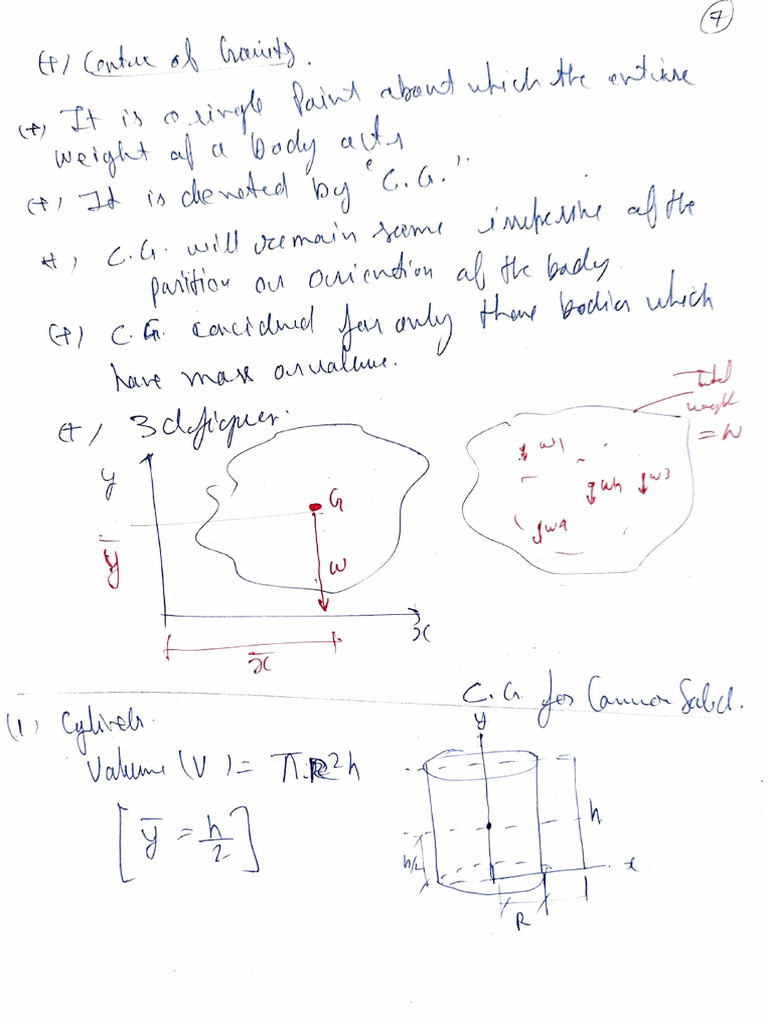 7
(+) Centre of Gravity.
(+) It is a single Point about which the entire
weight of a body acts
(+) It is denoted by "C.G."
+) C.G. will remain same irrespective of the
position or orientation of the body.
(+) C.G. considered for only those bodies which
have mass or volume.
(+) 3d figures.
Total
weight
= W
y
G
w1
w4
w3
w2
ȳ
W
x
x̄
C.G. for Common Solid.
(1) Cylinder.
y
Volume (V) = π R²h
[ȳ = h/2]
h
h/2
x
R